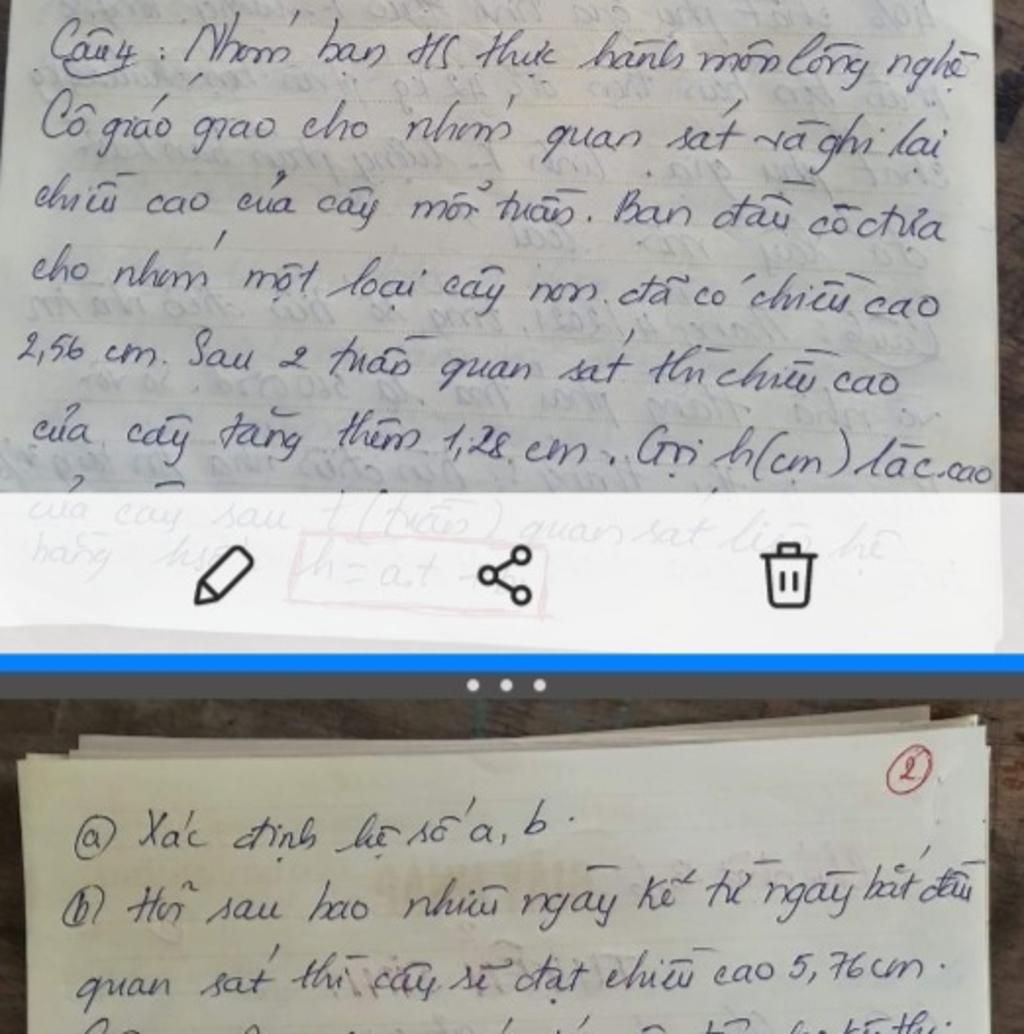 Câu 4 : Nhóm bạn HS thực hành môn Công nghệ
Cô giáo giao cho nhóm quan sát và ghi lại
chiều cao của cây mỗi tuần. Ban đầu cô đưa
cho nhóm một loại cây non đã có chiều cao
2,56 cm. Sau 2 tuần quan sát thì chiều cao
của cây tăng thêm 1,28 cm. Gọi h(cm) là c.cao
của cây sau t (tuần) quan sát liên hệ
bằng h = a.t +
2
a) Xác định hệ số a, b.
b) Hỏi sau bao nhiêu ngày kể từ ngày bắt đầu
quan sát thì cây sẽ đạt chiều cao 5,76cm.